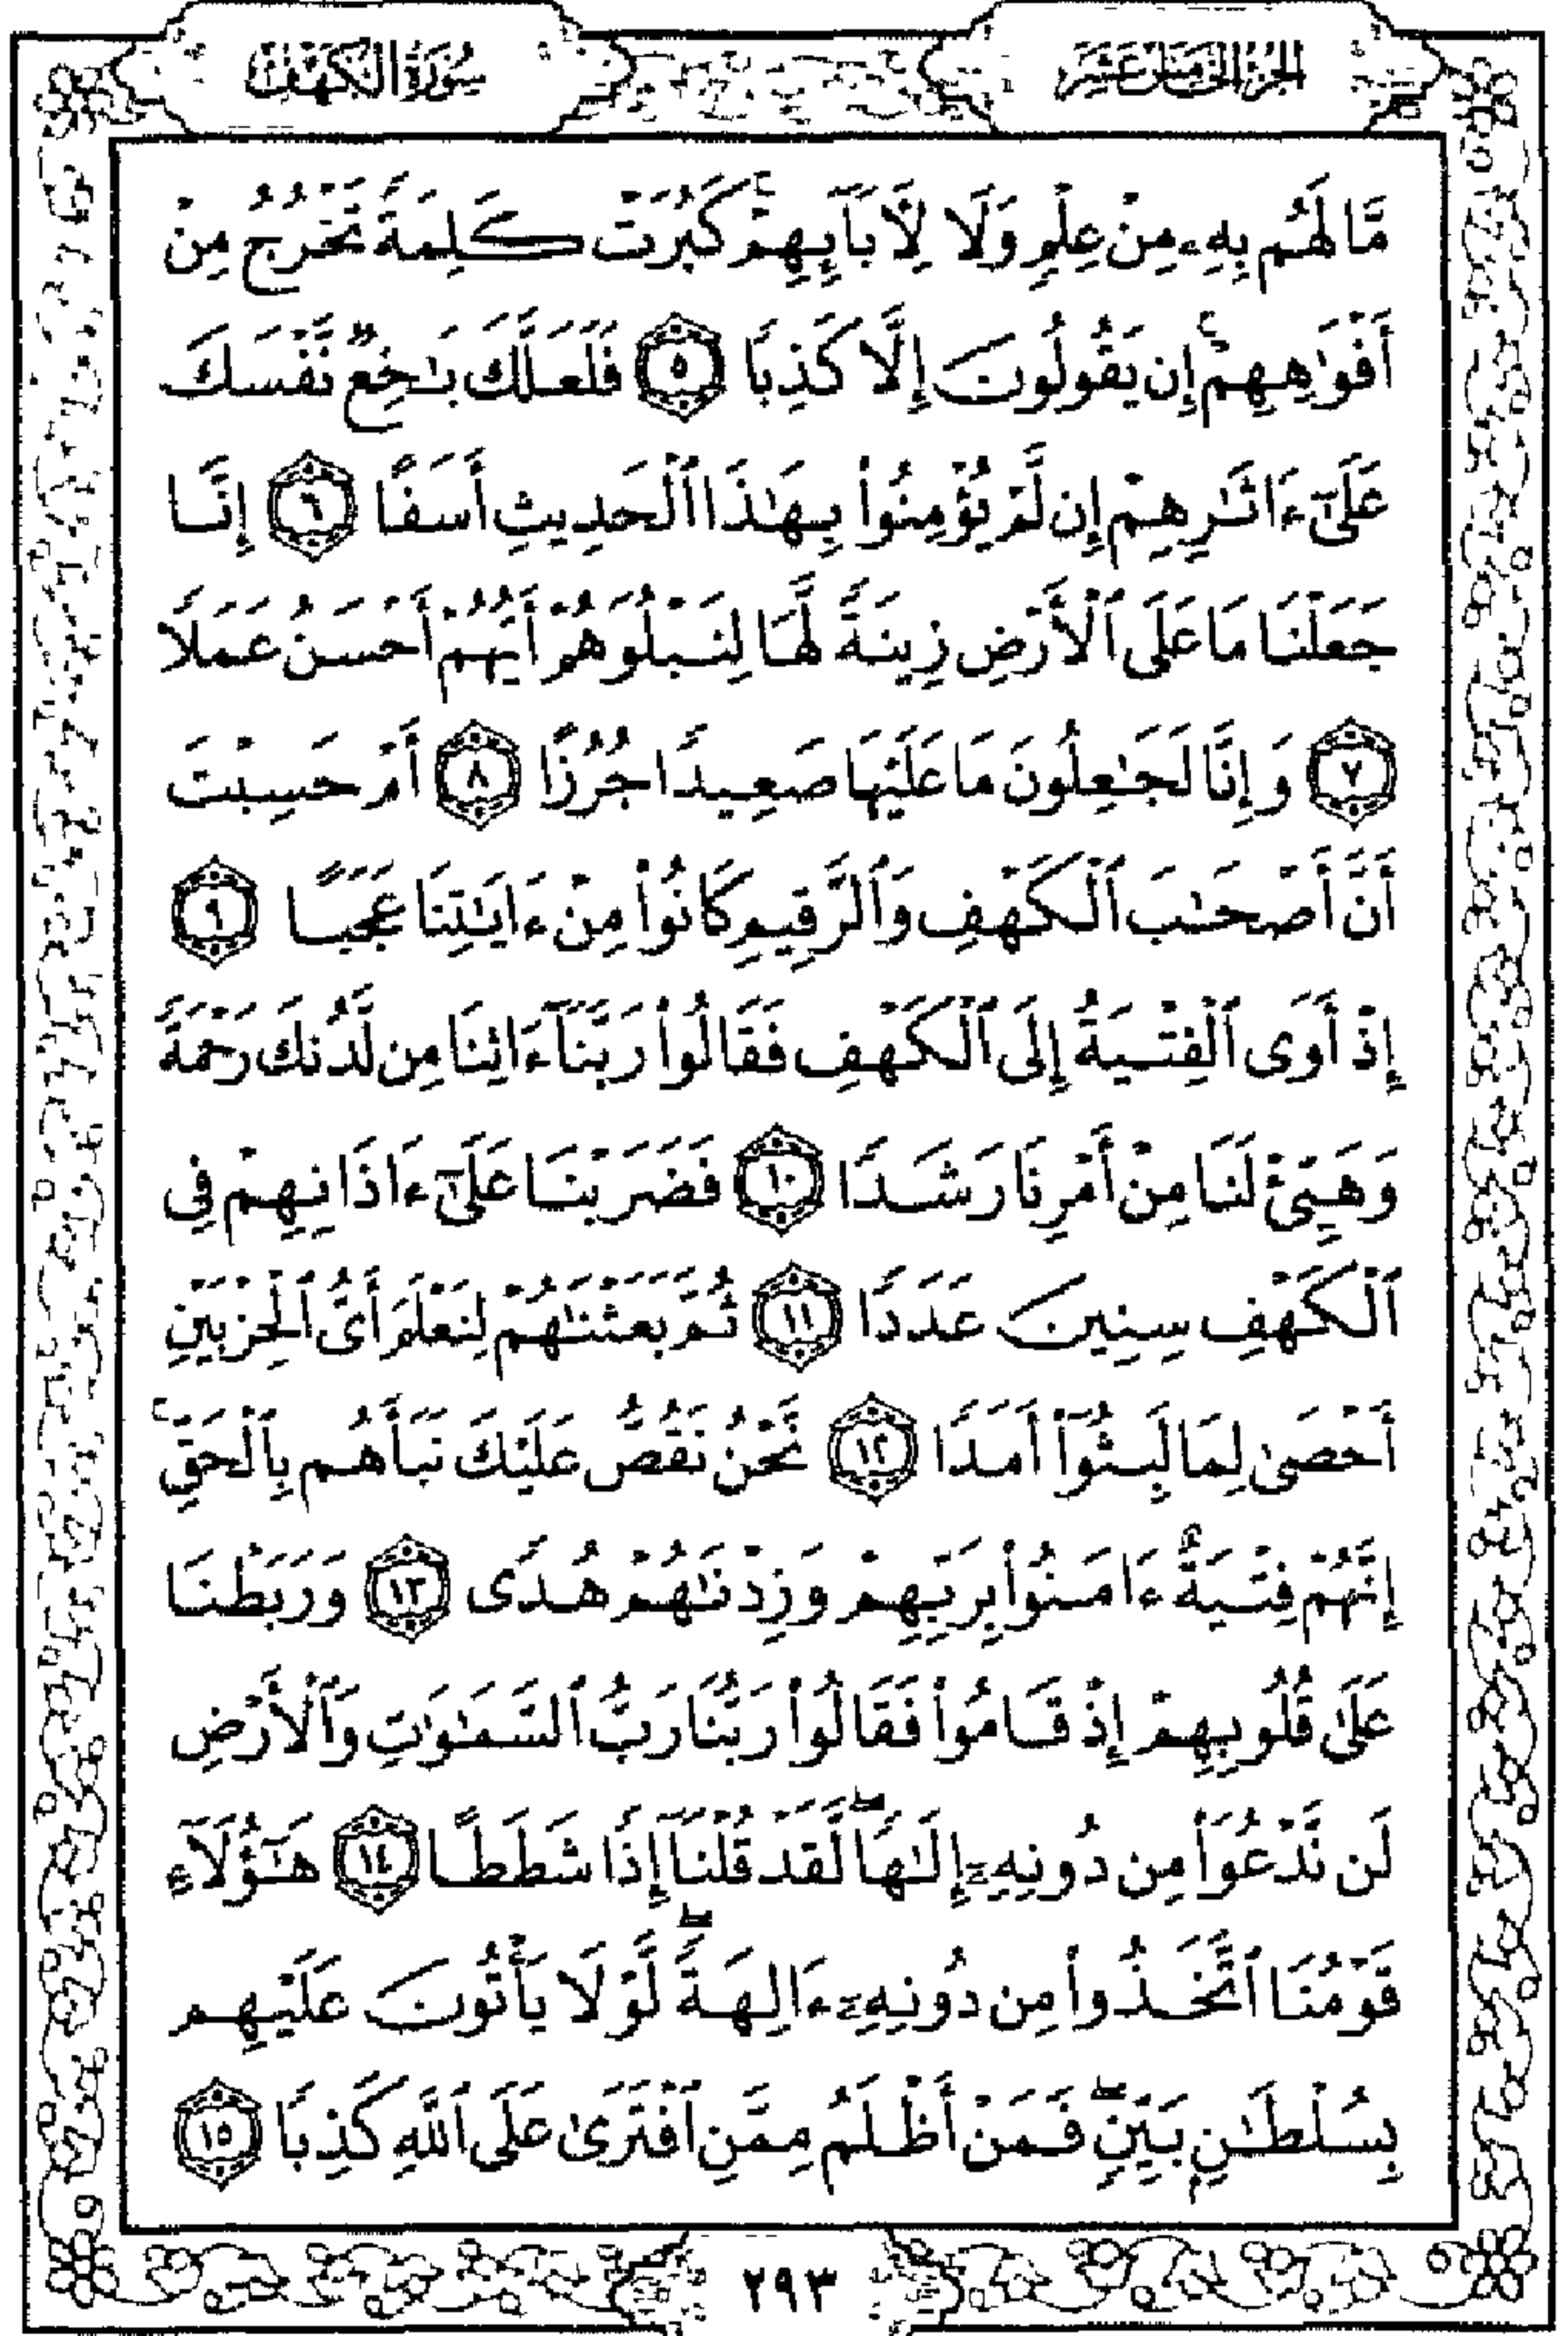 الجزء الخامس عشر
سُورَةُ الكَهْفِ
مَّا لَهُم بِهِۦ مِنْ عِلْمٍ وَلَا لِأَبَآئِهِمْ ۚ كَبُرَتْ كَلِمَةً تَخْرُجُ مِنْ
أَفْوَٰهِهِمْ ۚ إِن يَقُولُونَ إِلَّا كَذِبًا ٥ فَلَعَلَّكَ بَـٰخِعٌ نَّفْسَكَ
عَلَىٰٓ ءَاثَـٰرِهِمْ إِن لَّمْ يُؤْمِنُوا۟ بِهَـٰذَا ٱلْحَدِيثِ أَسَفًا ٦ إِنَّا
جَعَلْنَا مَا عَلَى ٱلْأَرْضِ زِينَةً لَّهَا لِنَبْلُوَهُمْ أَيُّهُمْ أَحْسَنُ عَمَلًا
٧ وَإِنَّا لَجَـٰعِلُونَ مَا عَلَيْهَا صَعِيدًا جُرُزًا ٨ أَمْ حَسِبْتَ
أَنَّ أَصْحَـٰبَ ٱلْكَهْفِ وَٱلرَّقِيمِ كَانُوا۟ مِنْ ءَايَـٰتِنَا عَجَبًا ٩
إِذْ أَوَى ٱلْفِتْيَةُ إِلَى ٱلْكَهْفِ فَقَالُوا۟ رَبَّنَآ ءَاتِنَا مِن لَّدُنكَ رَحْمَةً
وَهَيِّئْ لَنَا مِنْ أَمْرِنَا رَشَدًا ١٠ فَضَرَبْنَا عَلَىٰٓ ءَاذَانِهِمْ فِى
ٱلْكَهْفِ سِنِينَ عَدَدًا ١١ ثُمَّ بَعَثْنَـٰهُمْ لِنَعْلَمَ أَىُّ ٱلْحِزْبَيْنِ
أَحْصَىٰ لِمَا لَبِثُوٓا۟ أَمَدًا ١٢ نَّحْنُ نَقُصُّ عَلَيْكَ نَبَأَهُم بِٱلْحَقِّ ۚ
إِنَّهُمْ فِتْيَةٌ ءَامَنُوا۟ بِرَبِّهِمْ وَزِدْنَـٰهُمْ هُدًى ١٣ وَرَبَطْنَا
عَلَىٰ قُلُوبِهِمْ إِذْ قَامُوا۟ فَقَالُوا۟ رَبُّنَا رَبُّ ٱلسَّمَـٰوَٰتِ وَٱلْأَرْضِ
لَن نَّدْعُوَا۟ مِن دُونِهِۦٓ إِلَـٰهًا ۖ لَّقَدْ قُلْنَآ إِذًا شَطَطًا ١٤ هَـٰٓؤُلَآءِ
قَوْمُنَا ٱتَّخَذُوا۟ مِن دُونِهِۦٓ ءَالِهَةً ۖ لَّوْلَا يَأْتُونَ عَلَيْهِم
بِسُلْطَـٰنٍۭ بَيِّنٍ ۖ فَمَنْ أَظْلَمُ مِمَّنِ ٱفْتَرَىٰ عَلَى ٱللَّهِ كَذِبًا ١٥
٢٩٣